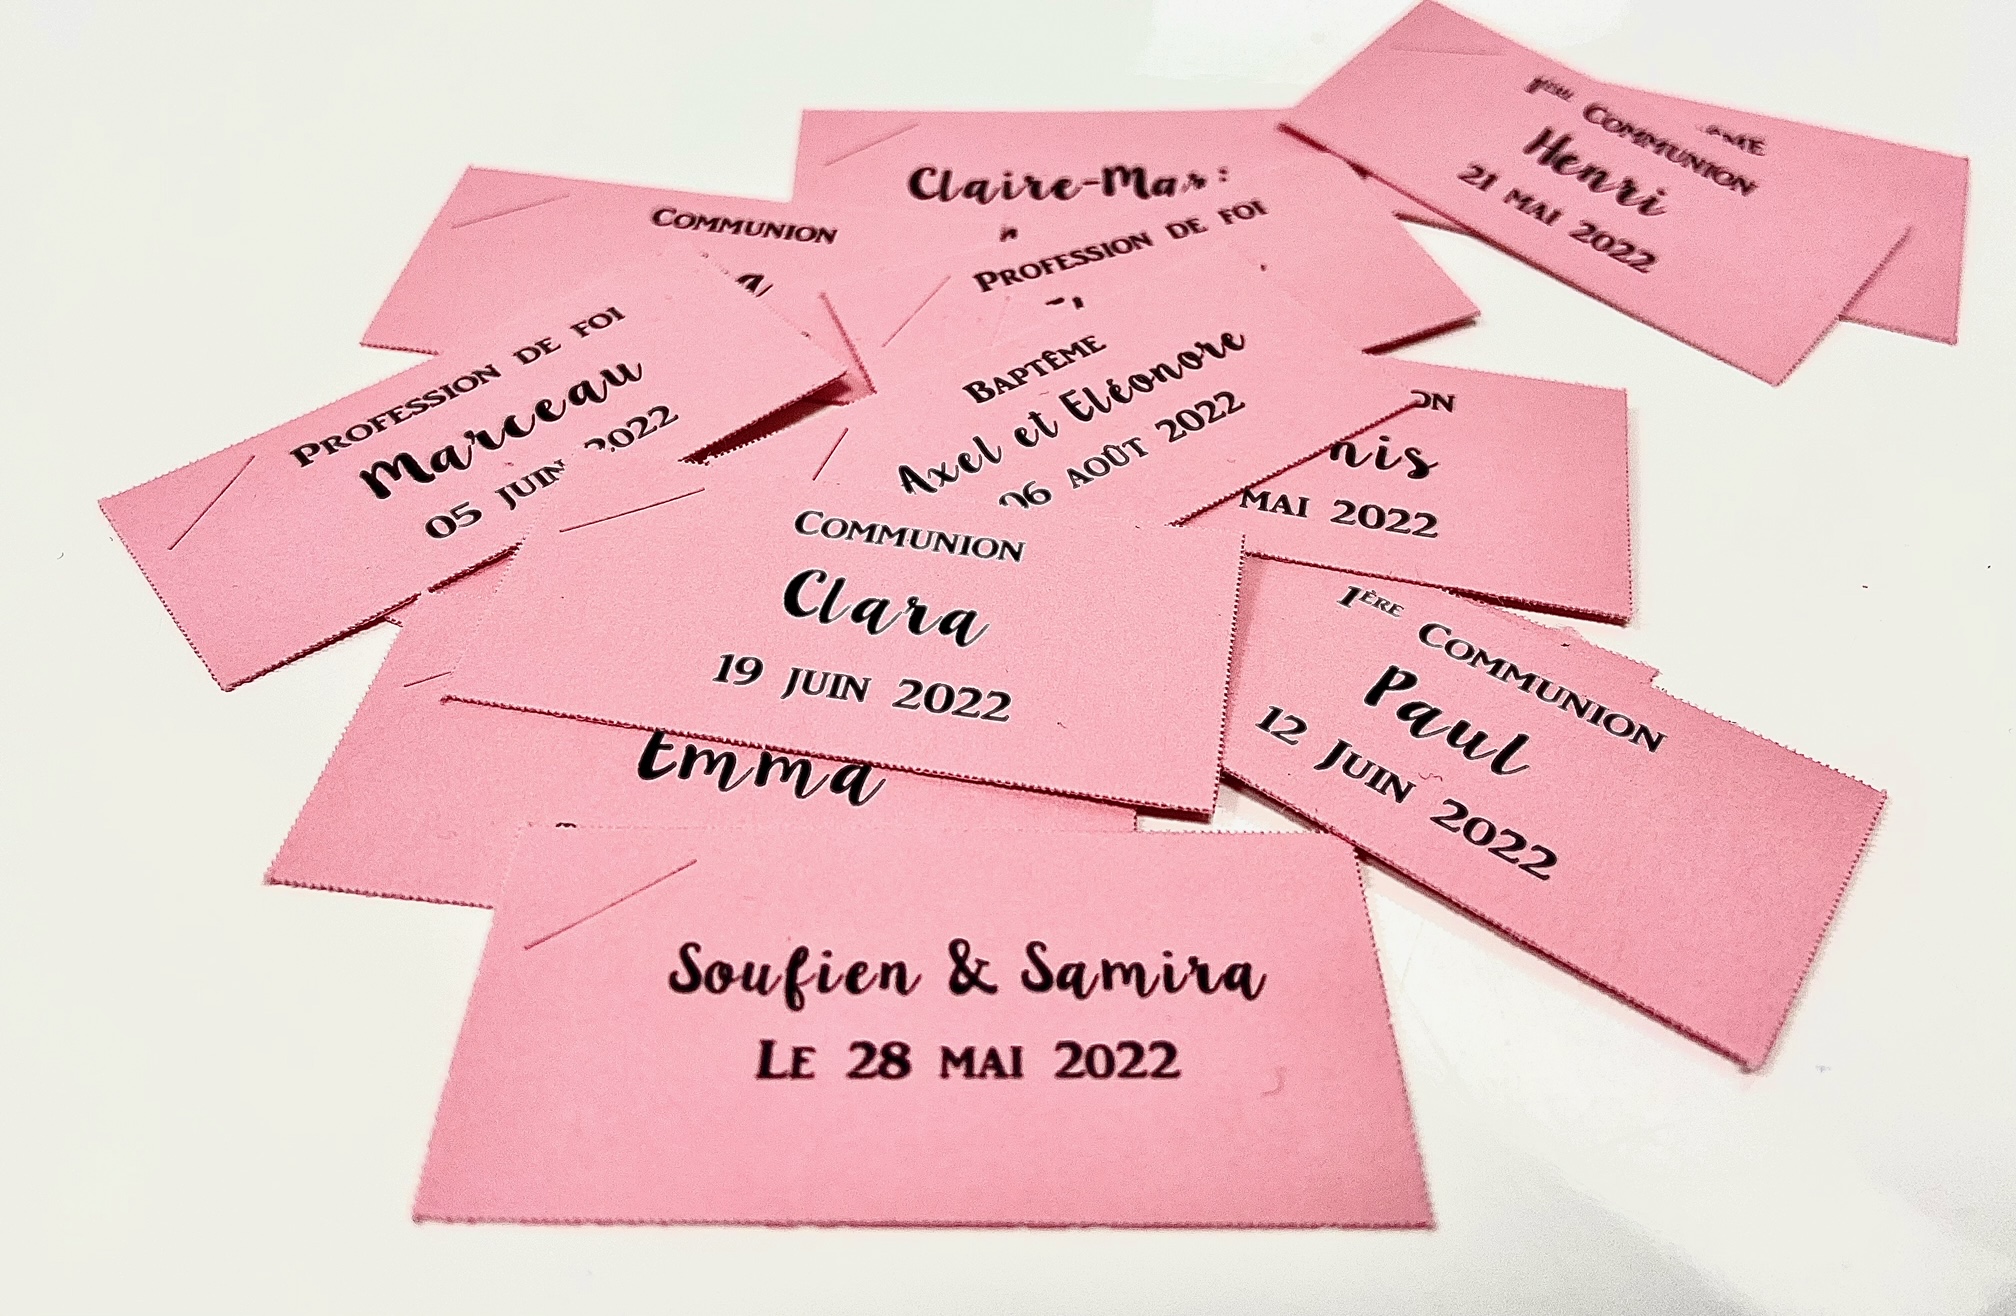 1ère Communion
Henri
21 mai 2022
Communion
Profession de foi
Profession de foi
Marceau
05 juin 2022
Baptême
Axel et Eléonore
août 2022
mai 2022
Communion
Clara
19 juin 2022
1ère Communion
Paul
12 Juin 2022
Emma
Soufien & Samira
Le 28 mai 2022